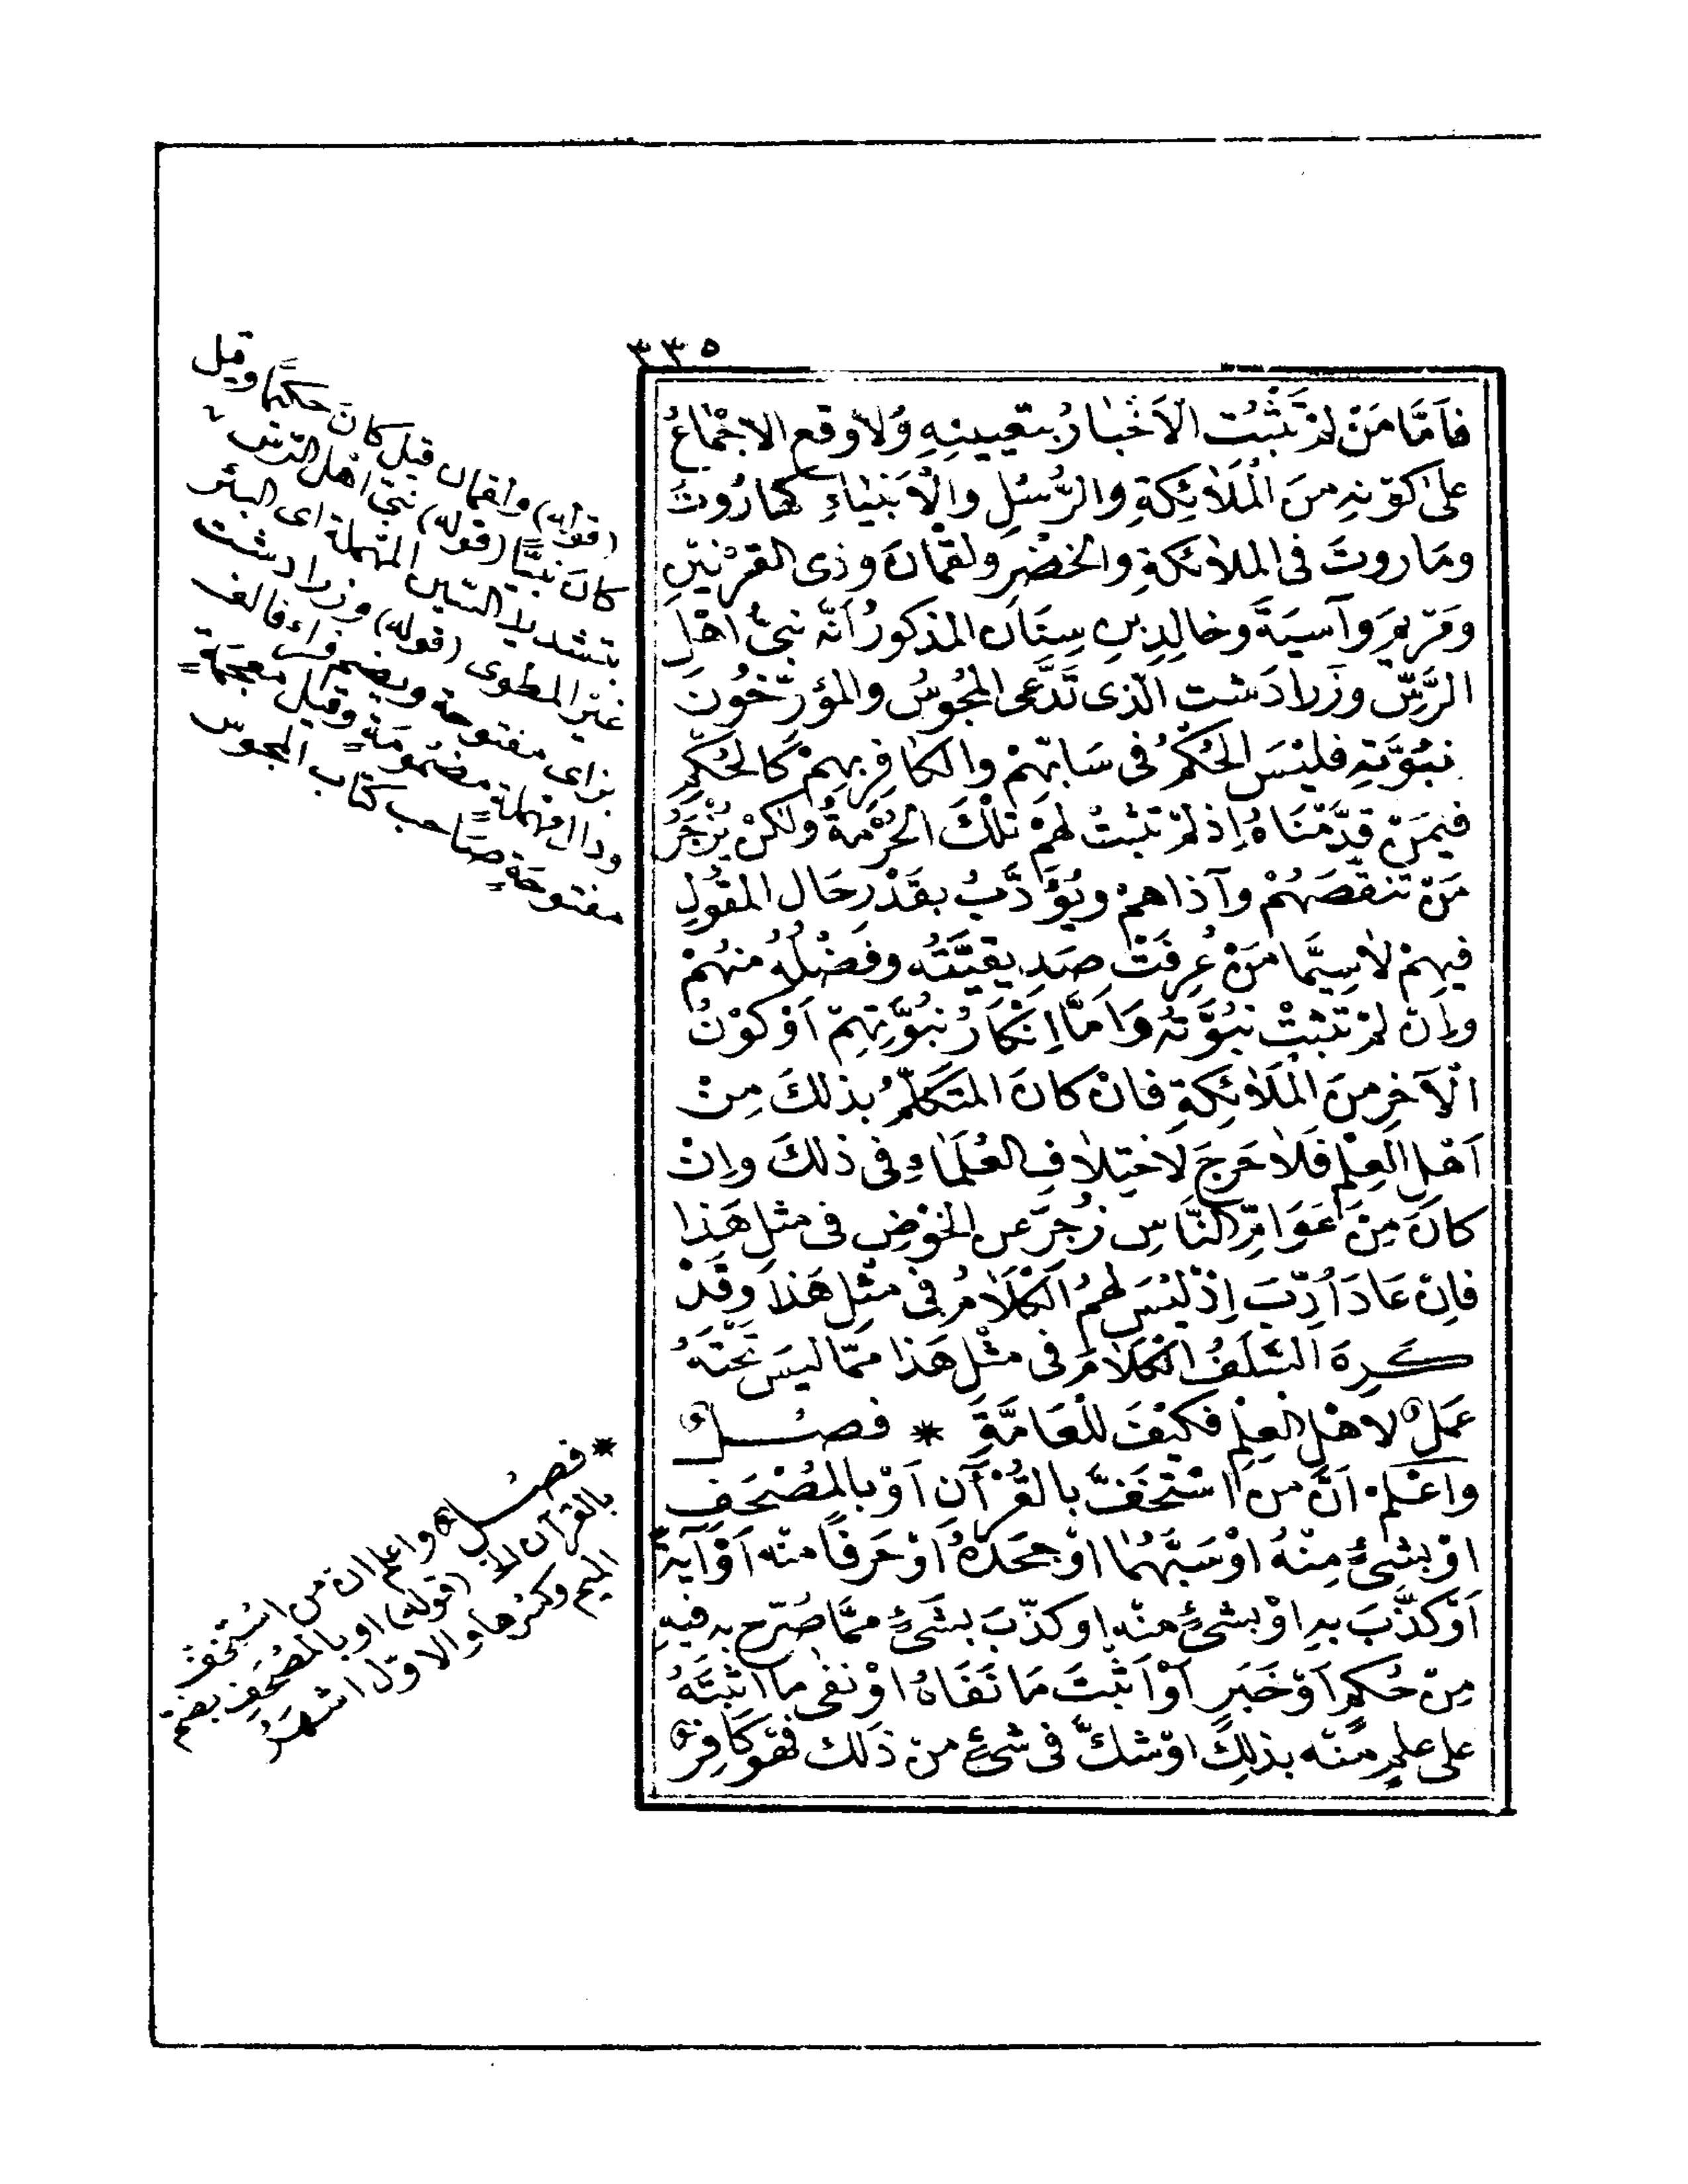 ٣٣٥
فَأَمَّا مَنْ لَمْ تَثْبُتِ الْاَخْبَارُ بتَعْيينِهِ وَلَا وقع الاجْمَاعُ
على كَوْنِهِ مِنَ الْمَلَائِكَةِ والرُّسُلِ والْاَنبْيَاءِ كهَارُوتَ
ومَاروتَ فى الملائكَةِ والخضْرِ ولقْمَانَ وذى القَرْنَيْنِ
ومَرْيمَ وآسيَةَ وخالِدِ بنِ سِنَان المذكورُ أنَّه نبىُّ اهْلِ
الرَّسِّ وزَرادَشت الّذى تَدَّعى المجُوسُ والمؤرّخُونَ
نبُوَّتهِ فليْسَ الحُكْمُ فى سَابّهِمْ والكافِرِ بهِمْ كَالحُكْمِ
فيمَنْ قدَّمْنَاهُ إذ لمْ تثبتْ لهمْ تلْكَ الحُرْمَةُ ولكنْ يُزْجَرُ
مَنْ تَنقَّصَهُمْ وآذاهمْ ويُؤَدَّبُ بقَدْرِ حَال المقُولِ
فيهِمْ لاسِيَّمَا مَنْ عُرِفَتْ صِدِيقِيَّتُه وفَضْلُهُ منْهُمْ
وإن لمْ تَثْبتْ نبُوَّتهُ وَأمَّا إنْكَارُ نبُوَّتِهِمْ اَوْكوْنُ
الْآخِرِ مِنَ الْمَلَائِكَةِ فانْ كانَ المتَكَلِّمُ بذلكَ مِنْ
اَهْلِ العِلْمِ فَلَا حَرَجَ لاخْتِلافِ العُلَمَاءِ فى ذلكَ وإنْ
كانَ مِنْ عَوَامِّ النَّاسِ زُجِرَ عن الخَوْضِ فى مثلِ هَذا
فإن عَادَ أُدِّبَ إذْ ليْسَ لهمُ الكَلَامُ فى مثْلِ هَذا وقَدْ
كَرِهَ السَّلَفُ الكَلَامَ فى مثْل هَذا ممّا ليسَ تحْتَهُ
عَمَلٌ لاهْلِ العِلْمِ فكيْفَ للْعَامَّةِ * فصْلٌ
واعْلم اَنَّ من اسْتَخَفَّ بالقُرْآنِ اَوْ بالمُصْحَفِ
اوْ بشىْءٍ مِنْهُ اوْ سَبَّهُمَا اوْ جحَدَهُ اوْ حَرفًا منْه اَوْ آيَةً
اَوْ كذَّبَ به اوْ بشىْءٍ منْه اوكذّبَ بشَىْءٍ ممَّا صُرّح به فيهِ
مِنْ حُكمٍ اَوْ خَبَرٍ اَوْ اَثْبتَ مَا نَفَاهُ اوْ نفى ما اثْبَتَهُ
على علْمٍ منْه بذلِكَ اوْ شكَّ فى شىْءٍ من ذَلك فهوَ كافِرٌ
(قوله) ولقمان قيل كانَ حكيمًا وقيل
كانَ نبيًّا (قوله) نبىّ اهْل الرّسّ
بتشديد السّين المهملة اى البئر
غيْر المطوى (قوله) وزرادشت
بزاى مفتوحة وبضم فراء فالف
ودال مهملةٍ مضمومَةٍ وقيل معجمَةٍ
مفتوحَةٍ صَاحب كتاب المجوس
* فصْلٌ واعلم ان من استخف
بالقرآن الخ (قوله) او بالمصْحَفِ بضم
الميم وكسْرها والاوّل اشهَرُ